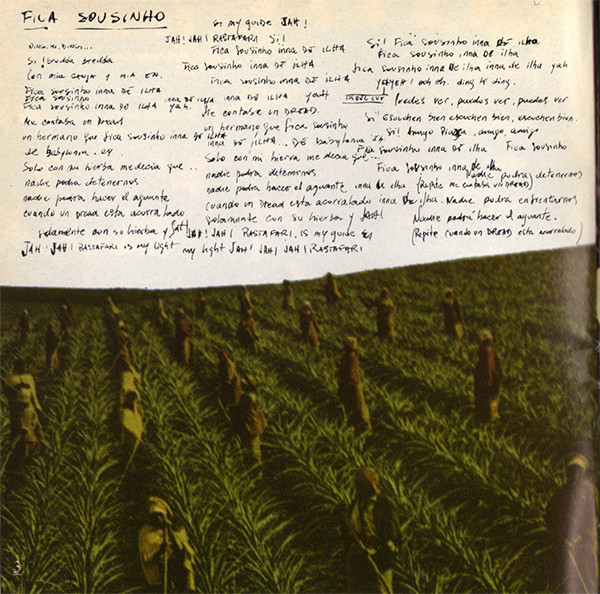 FICA SOUSINHO
DING, DI, DING...
Si! Brudda bredda
Con mia ganja y mia
Fica Sousinho inna DE ILHA
Fica Sousinho inna de ilha
Fica Sousinho inna DE ILHA yah.
Me contaba un Dread
un hermano que fica sousinho inna DE ILHA
de Babylonia.
Solo con mi hierba me decia que...
nadie podra detenernos
nadie podra hacer el aguante
cuando un dread esta acorralado
solamente con su hierba y JAH!
JAH! JAH! RASTAFARI, is my light
is my guide JAH!
JAH! JAH! RASTAFARI Si!
Fica Sousinho inna DE ILHA
Fica Sousinho inna DE ILHA
Fica Sousinho inna DE ILHA
inna DE ILHA yah!!
Me contaba un DREAD.
un hermano que fica sousinho
inna DE ILHA... DE Babylonia
Solo con mi hierba me decia que...
nadie podra detenernos
nadie podra hacer el aguante inna de ilha
cuando un dread esta acorralado inna De ilha.
solamente con su hierba y JAH!
JAH! JAH! RASTAFARI, is my guide
my light JAH! JAH! JAH! RASTAFARI
Si! Fica sousinho inna DE ILHA
Fica sousinho inna de ilha
Fica sousinho inna de ilha yah
yahyah! ooh oh. ding di ding.
puedes ver, puedes ver, puedes ver
Si! Escuchen bien escuchen bien, escuchen bien.
Si! Amigo Piazza, amigo, amigo
Fica Sousinho inna DE ilha Fica Sousinho
Fica Sousinho inna de ilha
Nadie podra detenernos
(Repite me contaba un DREAD)
Nadie podra enfrentarnos
Nadie podrá hacer el aguante.
(Repite cuando un DREAD esta acorralado)